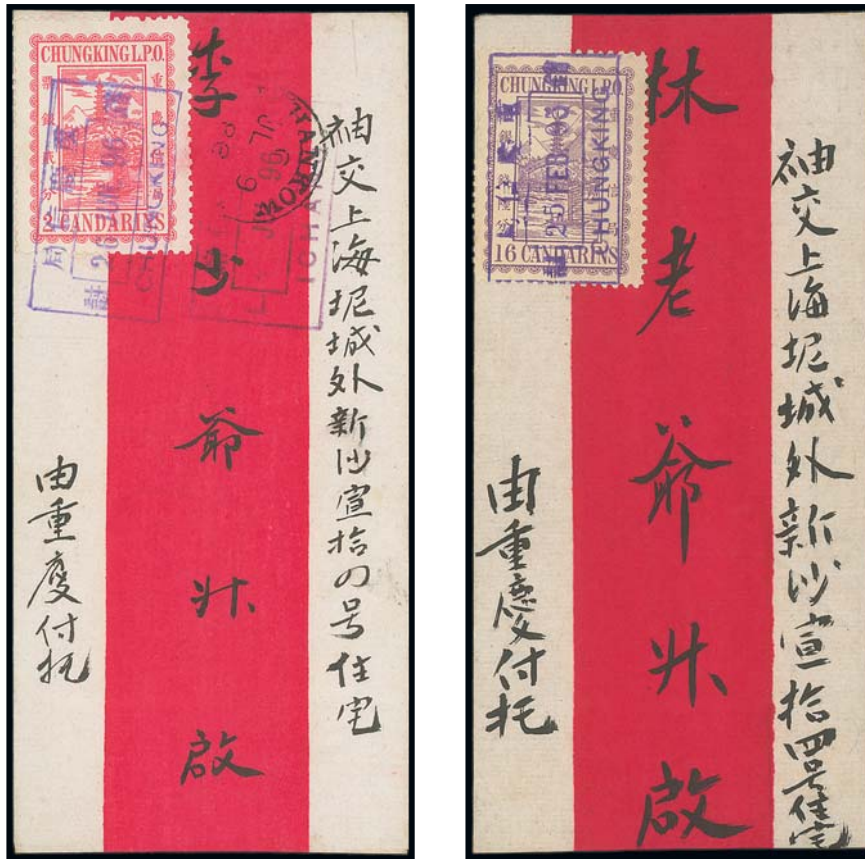 CHUNGKING L.P.O.
重慶信局
票銀貳分
2 CANDARINS
CHUNGKING
HANKOW
JUL
96
袖交上海坭城外新沙宣拾四号住宅
李少爺升啟
由重慶付托
CHUNGKING L.P.O.
16 CANDARINS
25 FEB 95
CHUNGKING
袖交上海坭城外新沙宣拾四号住宅
林老爺升啟
由重慶付托